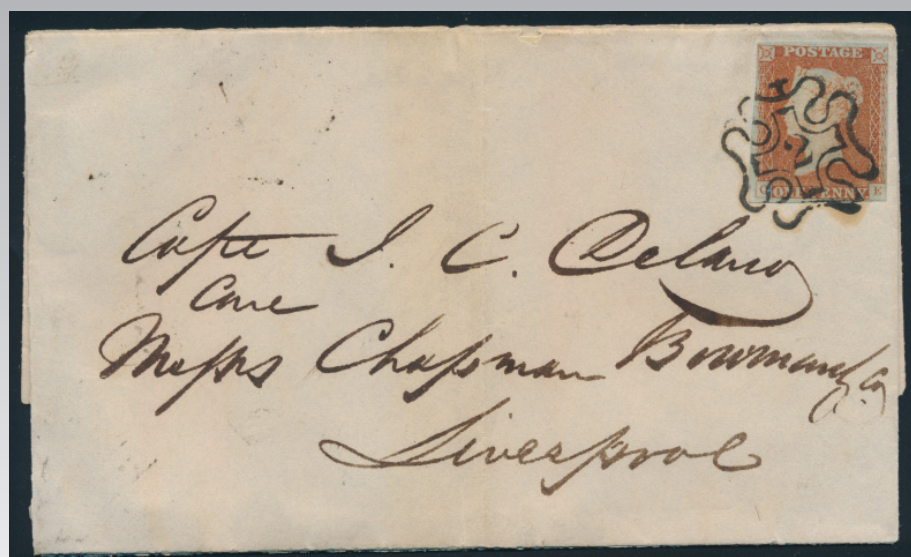 POSTAGE
2
ONE PENNY
E
Capt J. C. Delano
Care
Messrs Chapman Bowman & Co
Liverpool